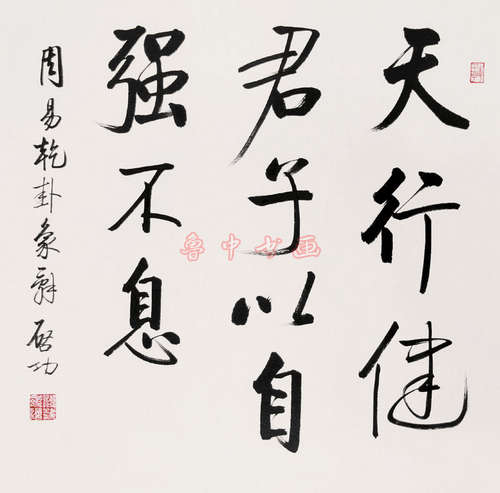 天行健
君子以自
强不息
周易乾卦象辞 启功
鲁中书画